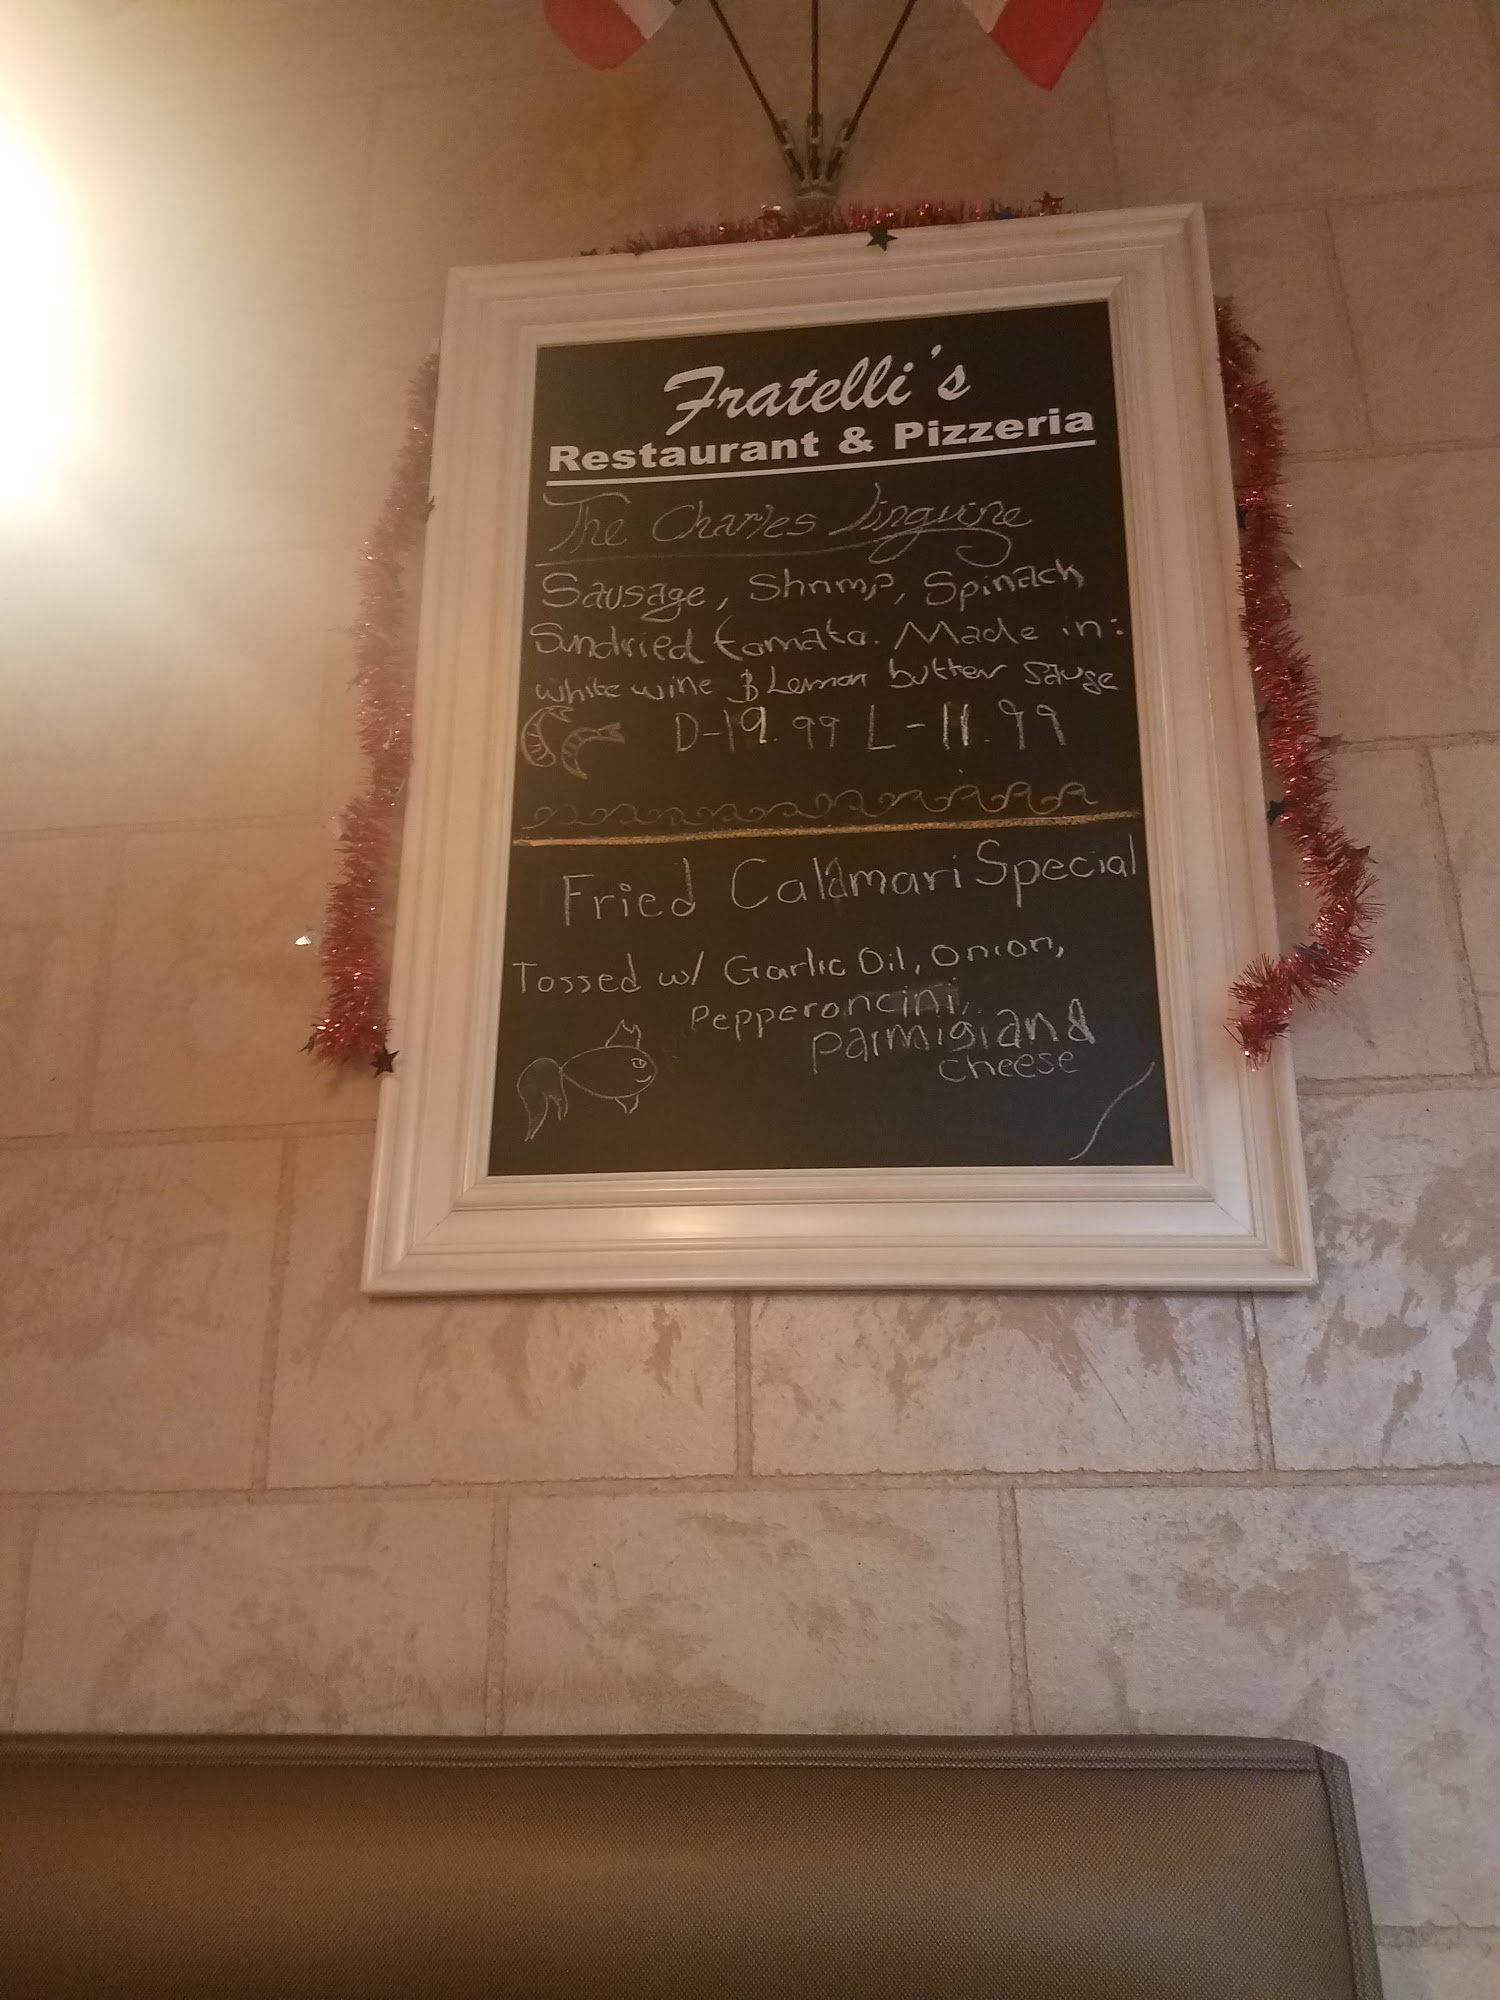 Fratelli's
Restaurant & Pizzeria
The Charles Linguine
Sausage, Shrimp, Spinach
Sundried tomato. Made in:
white wine & Lemon butter sause
D-19.99 L-11.99
Fried Calamari Special
Tossed w/ Garlic Oil, Onion,
Pepperoncini,
parmigian &
cheese